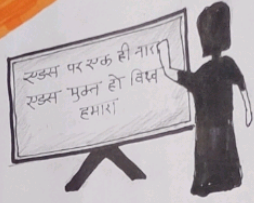 एड्स पर एक ही नारा
एड्स मुक्त हो विश्व
हमारा